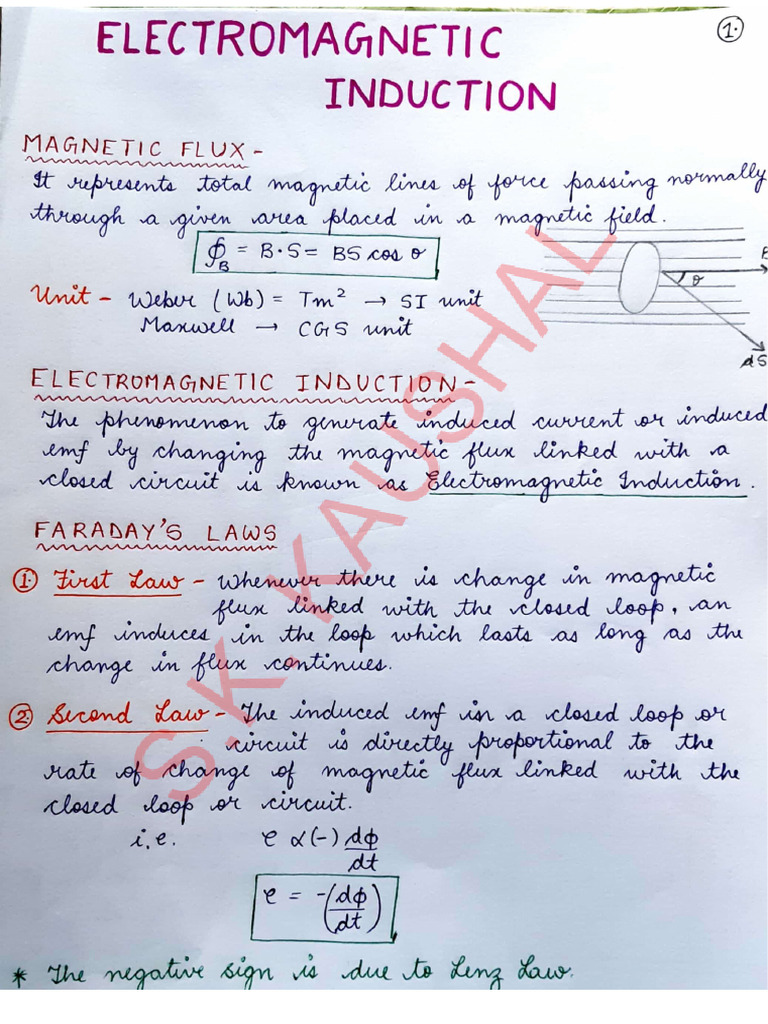 1.
ELECTROMAGNETIC
INDUCTION
MAGNETIC FLUX -
It represents total magnetic lines of force passing normally
through a given area placed in a magnetic field.
ϕ_B = B·S = BS cos θ
Unit - Weber (Wb) = Tm² → SI unit
Maxwell → CGS unit
θ
dS
ELECTROMAGNETIC INDUCTION -
The phenomenon to generate induced current or induced
emf by changing the magnetic flux linked with a
closed circuit is known as Electromagnetic Induction.
FARADAY'S LAWS
① First Law - Whenever there is change in magnetic
flux linked with the closed loop, an
emf induces in the loop which lasts as long as the
change in flux continues.
② Second Law - The induced emf in a closed loop or
circuit is directly proportional to the
rate of change of magnetic flux linked with the
closed loop or circuit.
i.e. e ∝ (-) dϕ/dt
e = -(dϕ/dt)
* The negative sign is due to Lenz Law.
S.K. KAUSHAL